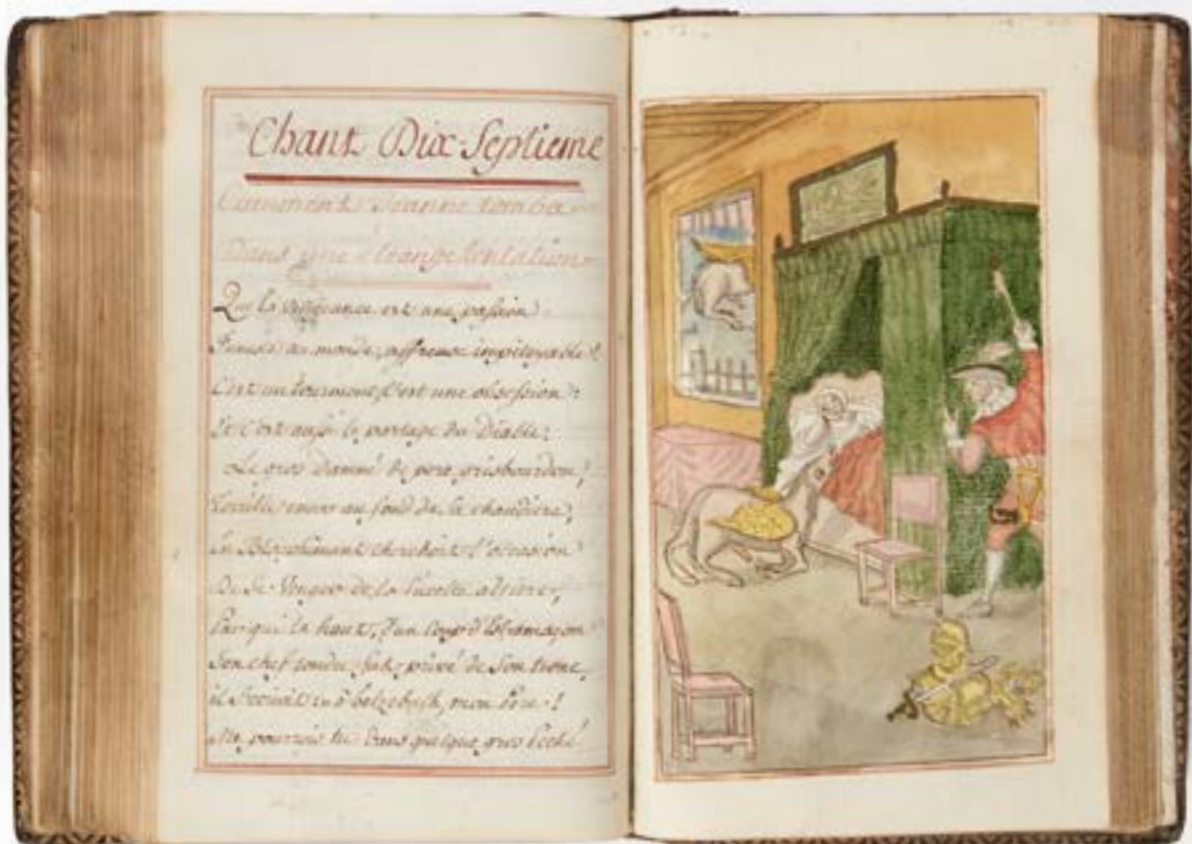 Chant Dix Septieme
Comment Jeanne tomba
Dans une étrange tentation
Que la vengeance est une passion
Funeste au monde, affreuse impitoyable!
C'est un tourment, c'est une obsession:
Et C'est aussi le partage du diable:
Le gros damné de pere grisbourdon,
Terrible encor au fond de la chaudiere,
En Blasphémant cherchoit l'occasion
De Se Venger de la Pucelle altiere,
Par qui la haut, d'un coup d'estramaçon
Son chef tondu fut privé de Son tronc,
il Crioit à belzebuth, mon Pere!
Ne pourrois tu dans quelque gros Peché